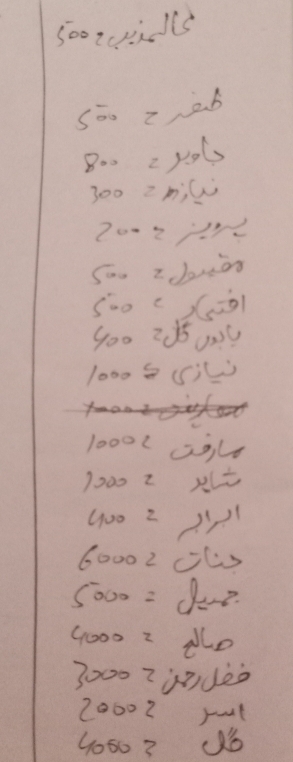 500 = 
ظفر = 500
جاوید = 800
نیاز = 300
پرویز = 200
مقبول = 500
افتخار = 500
بابوں گل = 400
نیازی = 1000
1000 =
صارفت = 1000
شاہد = 1000
ابرار = 400
جنات = 6000
جمیل = 5000
صالح = 4000
فضل رحمن = 3000
اسر = 2000
گل = 4000